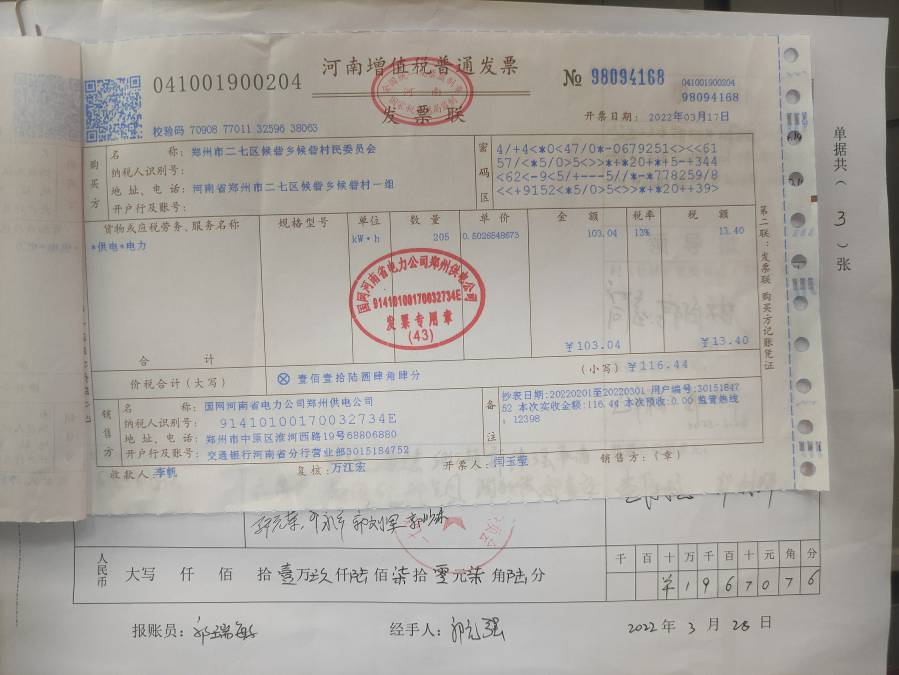 河南增值税普通发票
041001900204
№ 98094168
041001900204
98094168
发票联
开票日期: 2022年03月17日
校验码 70908 77011 32596 38063
购买方
名 称: 郑州市二七区候砦乡候砦村民委员会
纳税人识别号:
地 址、电 话: 河南省郑州市二七区候砦乡候砦村一组
开户行及账号:
密码区
4/+4<*0<47/0*-0679251<><<61
57/<*5/0>5<>>*+*20+*+5-+344
<62<-9<5/+---5//*-*778259/8
<<+9152<*5/0>5<>>*+*20++39>
货物或应税劳务、服务名称 规格型号 单位 数 量 单 价 金 额 税率 税 额
*供电*电力 kW·h 205 0.5026548673 103.04 13% 13.40
国网河南省电力公司郑州供电公司
91410100170032734E
发票专用章
(43)
合 计 ¥103.04 ¥13.40
价税合计(大写) ⊗ 壹佰壹拾陆圆肆角肆分 (小写) ¥116.44
销售方
名 称: 国网河南省电力公司郑州供电公司
纳税人识别号: 91410100170032734E
地 址、电 话: 郑州市中原区淮河西路19号68806880
开户行及账号: 交通银行河南省分行营业部3015184752
备注
抄表日期:20220201至20220301 用户编号:30151847
52 本次实收金额:116.44 本次预收:0.00 监管热线
: 12398
收款人: 李帆 复核: 万江宏 开票人: 闫玉莹 销售方: (章)
第二联:发票联 购买方记账凭证
单据共(3)张
人民币
大写 仟 佰 拾壹万玖仟陆佰柒拾零元柒角陆分
千 百 十 万 千 百 十 元 角 分
¥ 1 9 6 7 0 7 6
报账员:
经手人:
2022 年 3 月 28 日